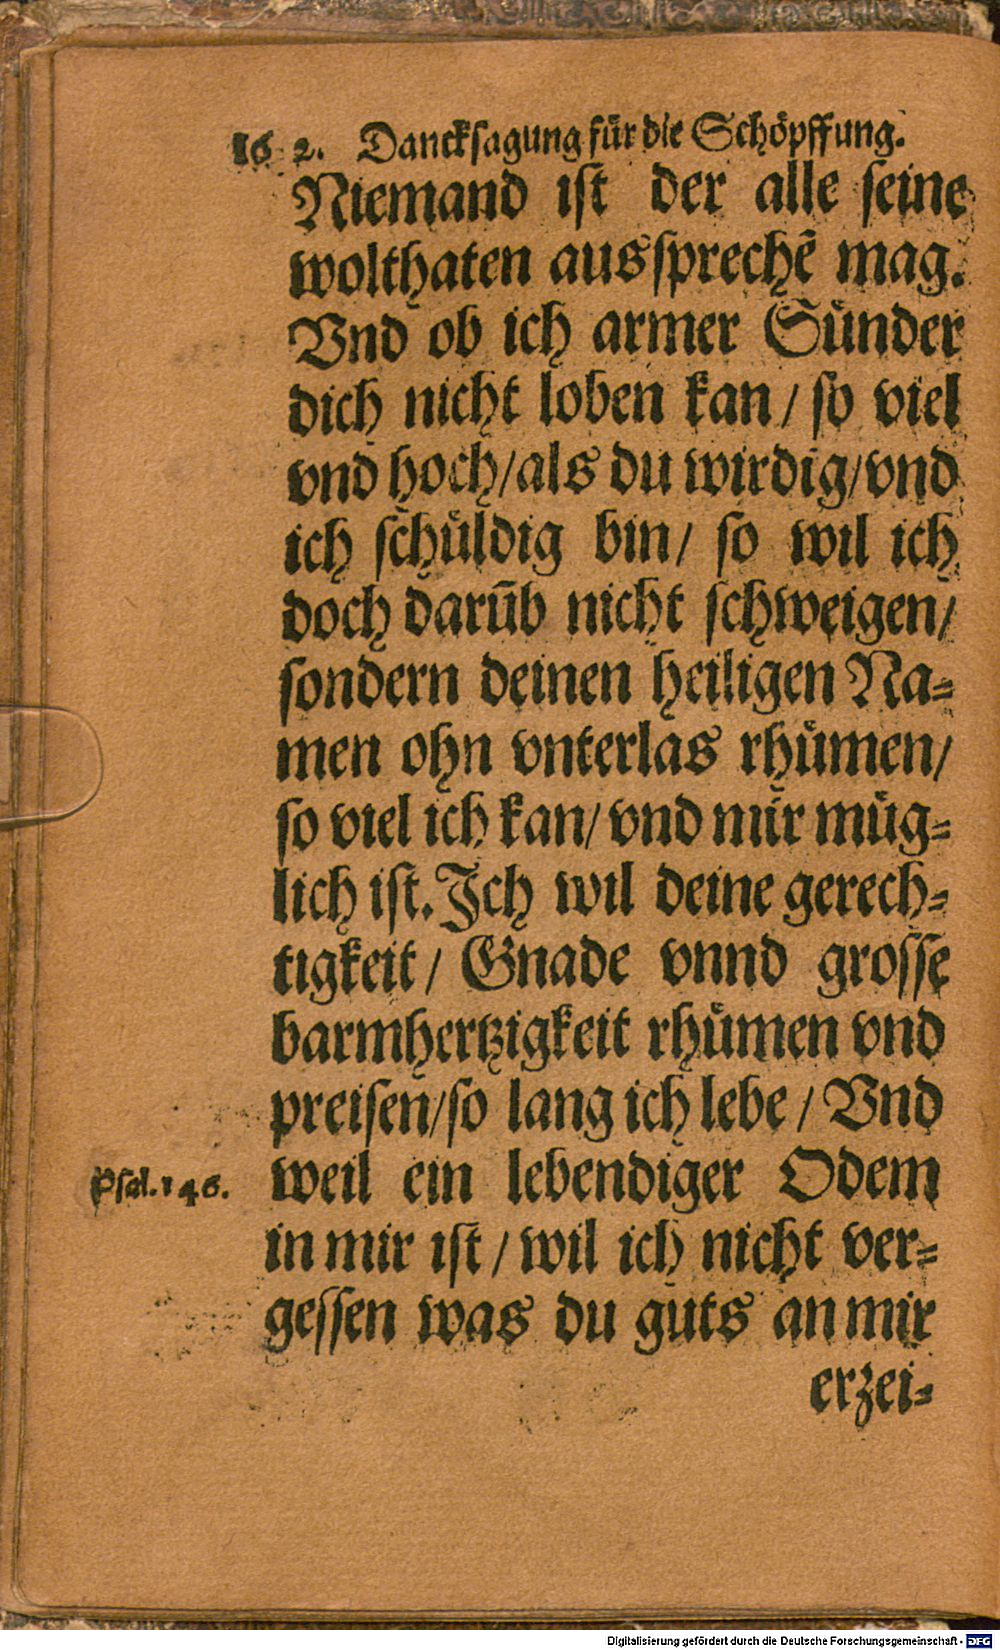 16 2. Dancksagung für die Schöpffung.
Niemand ist der alle seine
wolthaten aussprechē mag.
Vnd ob ich armer Sünder
dich nicht loben kan / so viel
vnd hoch / als du wirdig / vnd
ich schüldig bin / so wil ich
doch darūb nicht schweigen /
sondern deinen heiligen Na-
men ohn vnterlas rhümen /
so viel ich kan / vnd mir müg-
lich ist. Ich wil deine gerech-
tigkeit / Gnade vnnd grosse
barmhertzigkeit rhümen vnd
preisen / so lang ich lebe / Vnd
Psal. 146. weil ein lebendiger Odem
in mir ist / wil ich nicht ver-
gessen was du guts an mir
erzei-
Digitalisierung gefördert durch die Deutsche Forschungsgemeinschaft - DFG